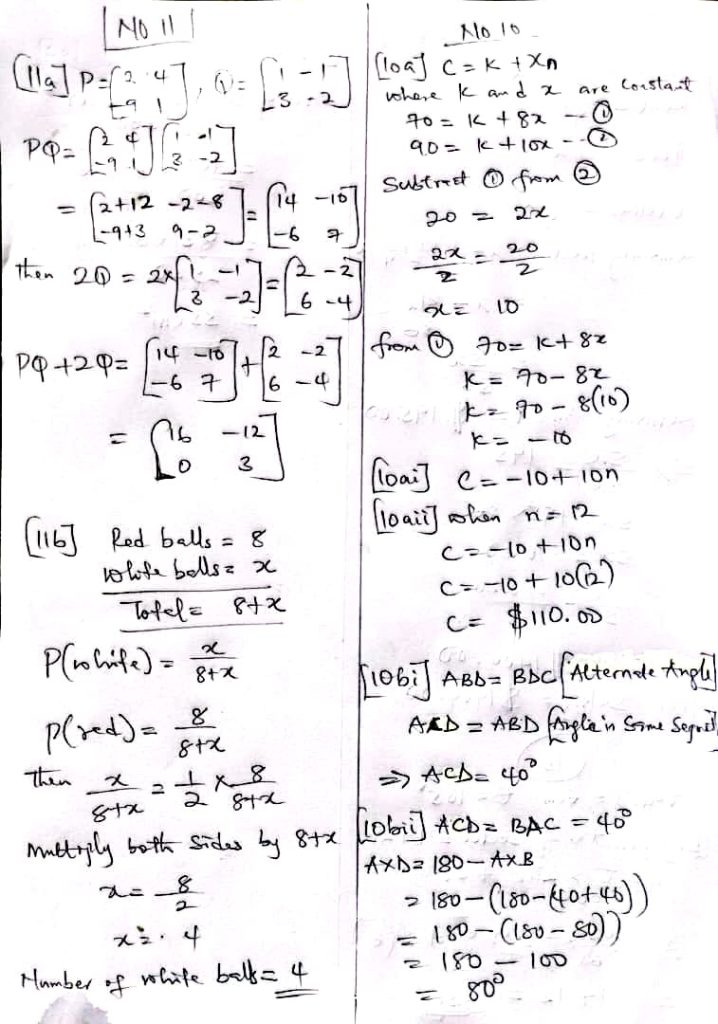 No 11
[11a] P = [2 4 / -9 1], Q = [1 -1 / 3 -2]
PQ = [2 4 / -9 1] [1 -1 / 3 -2]
= [2+12 -2-8 / -9+3 9-2] = [14 -10 / -6 7]
then 2Q = 2x[1 -1 / 3 -2] = [2 -2 / 6 -4]
PQ + 2Q = [14 -10 / -6 7] + [2 -2 / 6 -4]
= [16 -12 / 0 3]
[11b] Red balls = 8
White balls = x
Total = 8+x
P(white) = x/8+x
P(red) = 8/8+x
Then x/8+x = 1/2 x 8/8+x
Multiply both sides by 8+x
x = 8/2
x = 4
Number of white balls = 4
No 10
[10a] C = K + xn
where K and x are constant
70 = K + 8x -- ①
90 = K + 10x -- ②
Subtract ① from ②
20 = 2x
2x/2 = 20/2
x = 10
from ① 70 = K + 8x
K = 70 - 8x
K = 70 - 8(10)
K = -10
[10ai] C = -10 + 10n
[10aii] when n = 12
C = -10 + 10n
C = -10 + 10(12)
C = $110.00
[10bi] ABD = BDC [Alternate Angle]
ACD = ABD [Angle in Same Segmet]
⇒ ACD = 40°
[10bii] ACD = BAC = 40°
AXD = 180 - AXB
= 180 - (180 - (40+40))
= 180 - (180 - 80))
= 180 - 100
= 80°